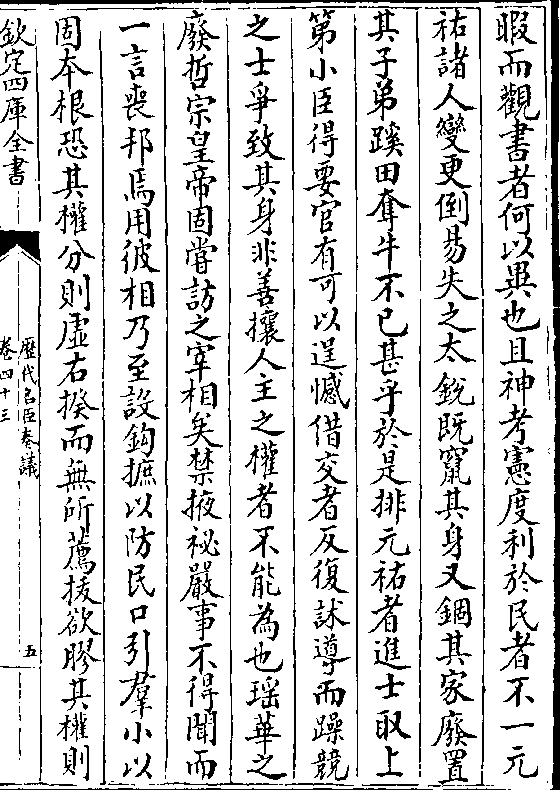 暇而觀書者何以異也且神考憲度利於民者不一元
祐諸人變更倒易失之太銳既竄其身又錮其家廢置
其子弟蹊田奪牛不已甚乎於是排元祐者進士取上
第小臣得要官有可以逞憾借交者反復訹導而躁競
之士爭致其身非善攘人主之權者不能為也瑶華之
廢哲宗皇帝固嘗訪之宰相矣禁掖祕嚴事不得聞而
一言喪邦焉用彼相乃至設鈎摭以防民口引羣小以
固本根恐其權分則虛右揆而無所薦拔欲膠其權則
欽定四庫全書
歷代名臣奏議
卷四十三
五